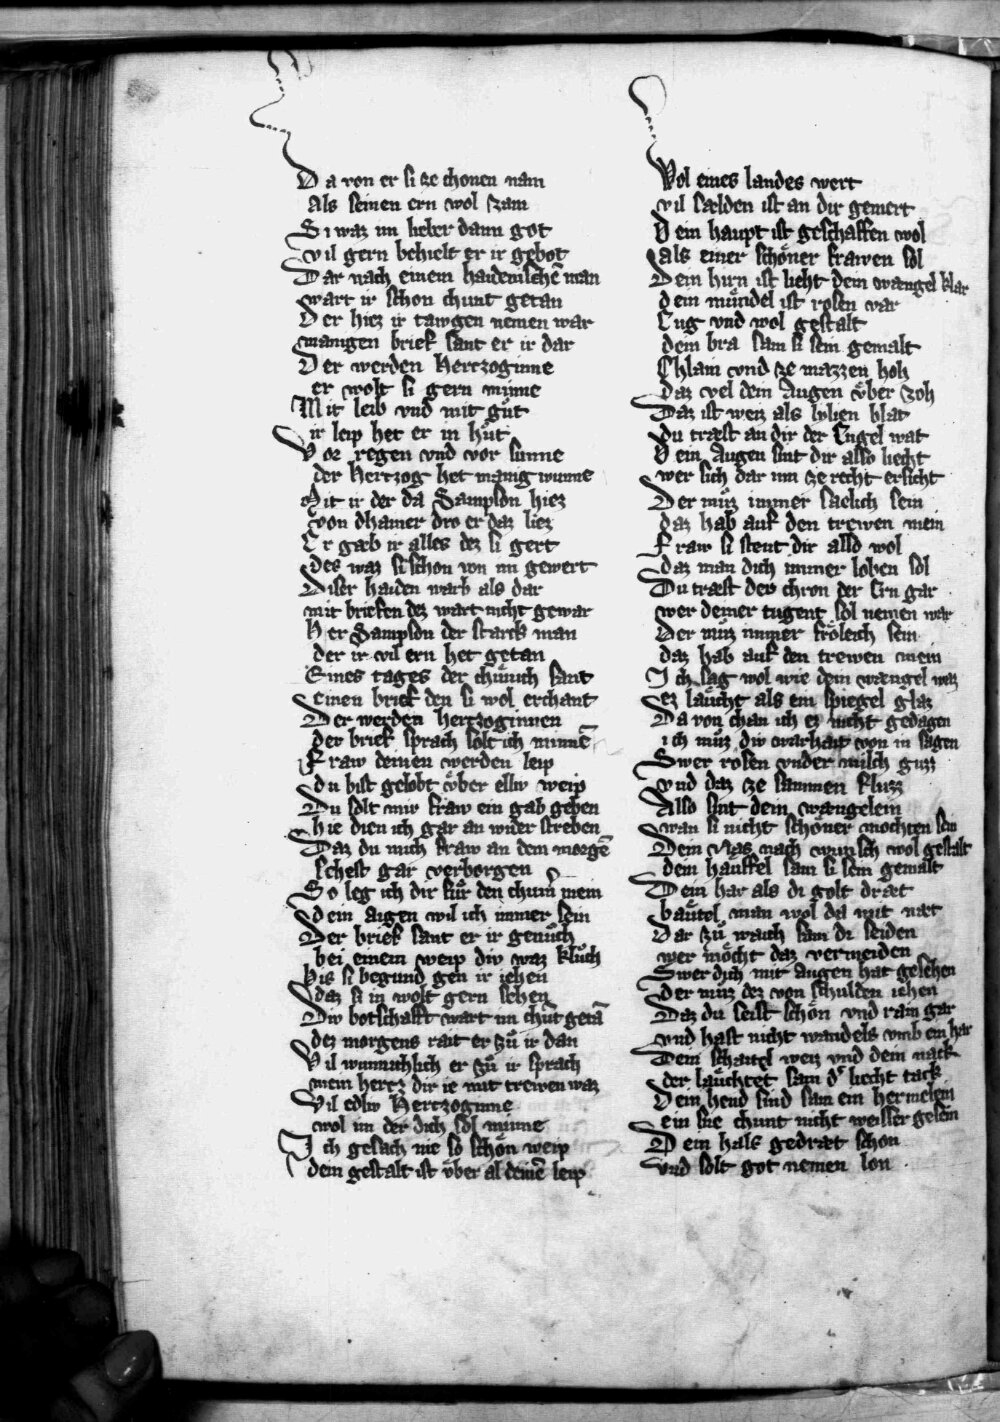 Da von er si ze chonen nam
Als seinen ern wol zam
Si waz im lieber dann got
vil gern behielt er ir gebot
Dar nach einem haidenischē man
wart ir schon chunt getan
Der hiez ir tawgen nemen war
manigen brief sant er ir dar
Der werden Hertzoginne
er wolt si gern minne
Mit leib vnd mit gůt
ir leip het er in hůt
Vor regen vnd vor sunne
der Hertzog het manig wunne
Mit ir der da Sampson hiez
von dhainer dro er daz liez
Er gæb ir alles dez si gert
des waz si schon von im gewert
Diser haiden warb als dar
mit briefen dez wart nicht gewar
Her Sampson der starck man
der ir vil ern het getan
Eines tages der chünich sant
einen brief den si wol erchant
Der werden hertzoginnen
der brief sprach solt ich minnē
Fraw deinen werden leip
du bist gelobt vͤber elliv weip
Du solt mir fraw ein gab geben
hie dien ich gar an wider streben
Daz du mich fraw an dem morgē
schest gar verborgen
So leg ich dir für den chum̄ mein
dein augen wil ich immer sein
Der brief sant er ir genůch
bei einem weip div waz klůch
Bis si begund gen ir iehen
daz si in wolt gern sehen
Div botschafft wart im chūt getā
dez morgens rait er zů ir dan
Vil wunnichlich er zů ir sprach
mein hertz dir ie mit trewen waz
Vil edliv Hertzoginne
wol im der dich sol minne
Ich gesach nie so schön weip
dein gestalt ist vͤber al deinē leip
Wol eines landes wert
vil sælden ist an dir gemert
Dein haupt ist geschaffen wol
als einer schöner frawen sol
Dein hirn ist lieht dein wængel klar
dein mündel ist rosen var
Eng vnd wol gestalt
dein bra sam si sein gemalt
Chlain vnd ze mazzen hoh
daz vel dein Augen vͤber zoh
Daz ist weiz als lylien blat
du træst an dir der Engel wat
Dein Augen sint dir also liecht
wer sich dar inn ze recht ersicht
Der müz immer sælich sein
daz hab auf den trewen mein
Fraw si stent dir also wol
daz man dich immer loben sol
Du træst der chron der Ern gar
wer deiner tugent sol nemen war
Der müz immer fröleich sein
daz hab auf den trewen mein
Ich sag wol wie dein wængel waz
ez läucht als ein spiegel glaz
Da von chan ich ez nicht gedagen
ich müz div warhait von in sagen
Swer rosen vnder milch guzz
vnd daz ze sammen fluzz
Also sint dein wængelein
wan si nicht schöner mochten sein
Dein Nas nach wunsch wol gestalt
dein hauffel sam si sein gemalt
Dein har als di golt dræt
bäutel man wol da mit næt
Dar zů waich sam di seiden
wer möcht daz vermeiden
Swer dich mit augen hat gesehen
der müz dez von schulden iehen
Daz du seist schön vnd rain gar
vnd hast nicht wandels vmb ein har
Dein schaitel weiz vnd dein nack
der läuchtet sam d' liecht tack
Dein hend sind sam ein hermelein
ein sne chunt nicht weisser gesein
Dein hals gedræt schon
vnd solt got nemen lon